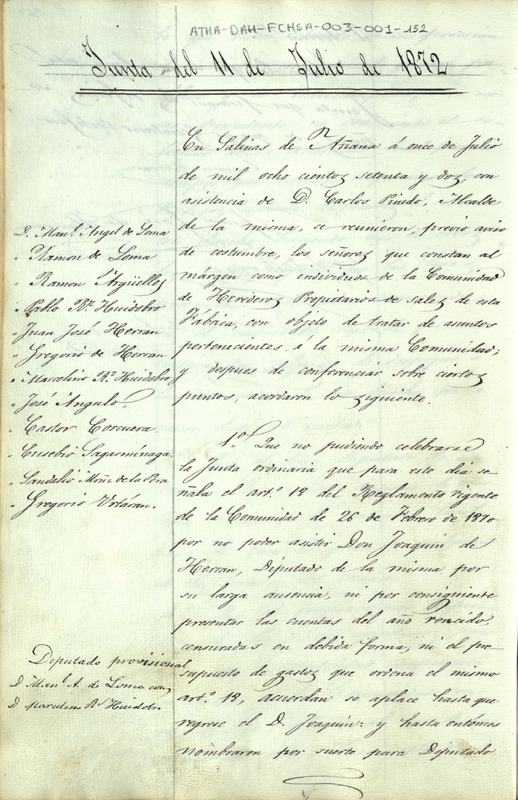 ATHA-DAH-FCHSA-003-001-152
Junta del 11 de Julio de 1872
En Salinas de Añana á once de Julio
de mil ocho cientos setenta y dos, con
asistencia de D. Carlos Pinedo, Alcalde
de la misma, se reunieron, previo aviso
de costumbre, los señores que constan al
márgen como individuos de la Comunidad
de Herederos Propietarios de sales de esta
Fábrica, con objeto de tratar de asuntos
pertenecientes á la misma Comunidad;
y despues de conferenciar sobre ciertos
puntos, acordaron lo siguiente.
D. Man.l Angel de Loma
" Ramon de Loma
" Ramon Argüelles
" Pablo R.z Huidobro
" Juan José Herran
" Gregorio de Herran
" Marcelino R.z Huidobro
" José Angulo
" Castor Corcuera
" Eusebio Sagarminaga
" Sandalio Mñe de la Pra
" Gregorio Urtáran
1.º Que no pudiendo celebrarse
la Junta ordinaria que para este dia se-
ñala el art.º 18 del Reglamento vigente
de la Comunidad de 26 de Febrero de 1870
por no poder asistir Don Joaquin de
Herran, Diputado de la misma por
su larga ausencia, ni por consiguiente
presentar las cuentas del año vencido
censuradas en debida forma, ni el pre-
supuesto de gastos que ordena el mismo
art.º 18, acuerdan se aplace hasta que
regrese el D. Joaquin: y hasta entónces
nombraron por suerte para Diputado
Diputado provisional
D Man.l A. de Loma con
D Marcelino R.z Huidobro